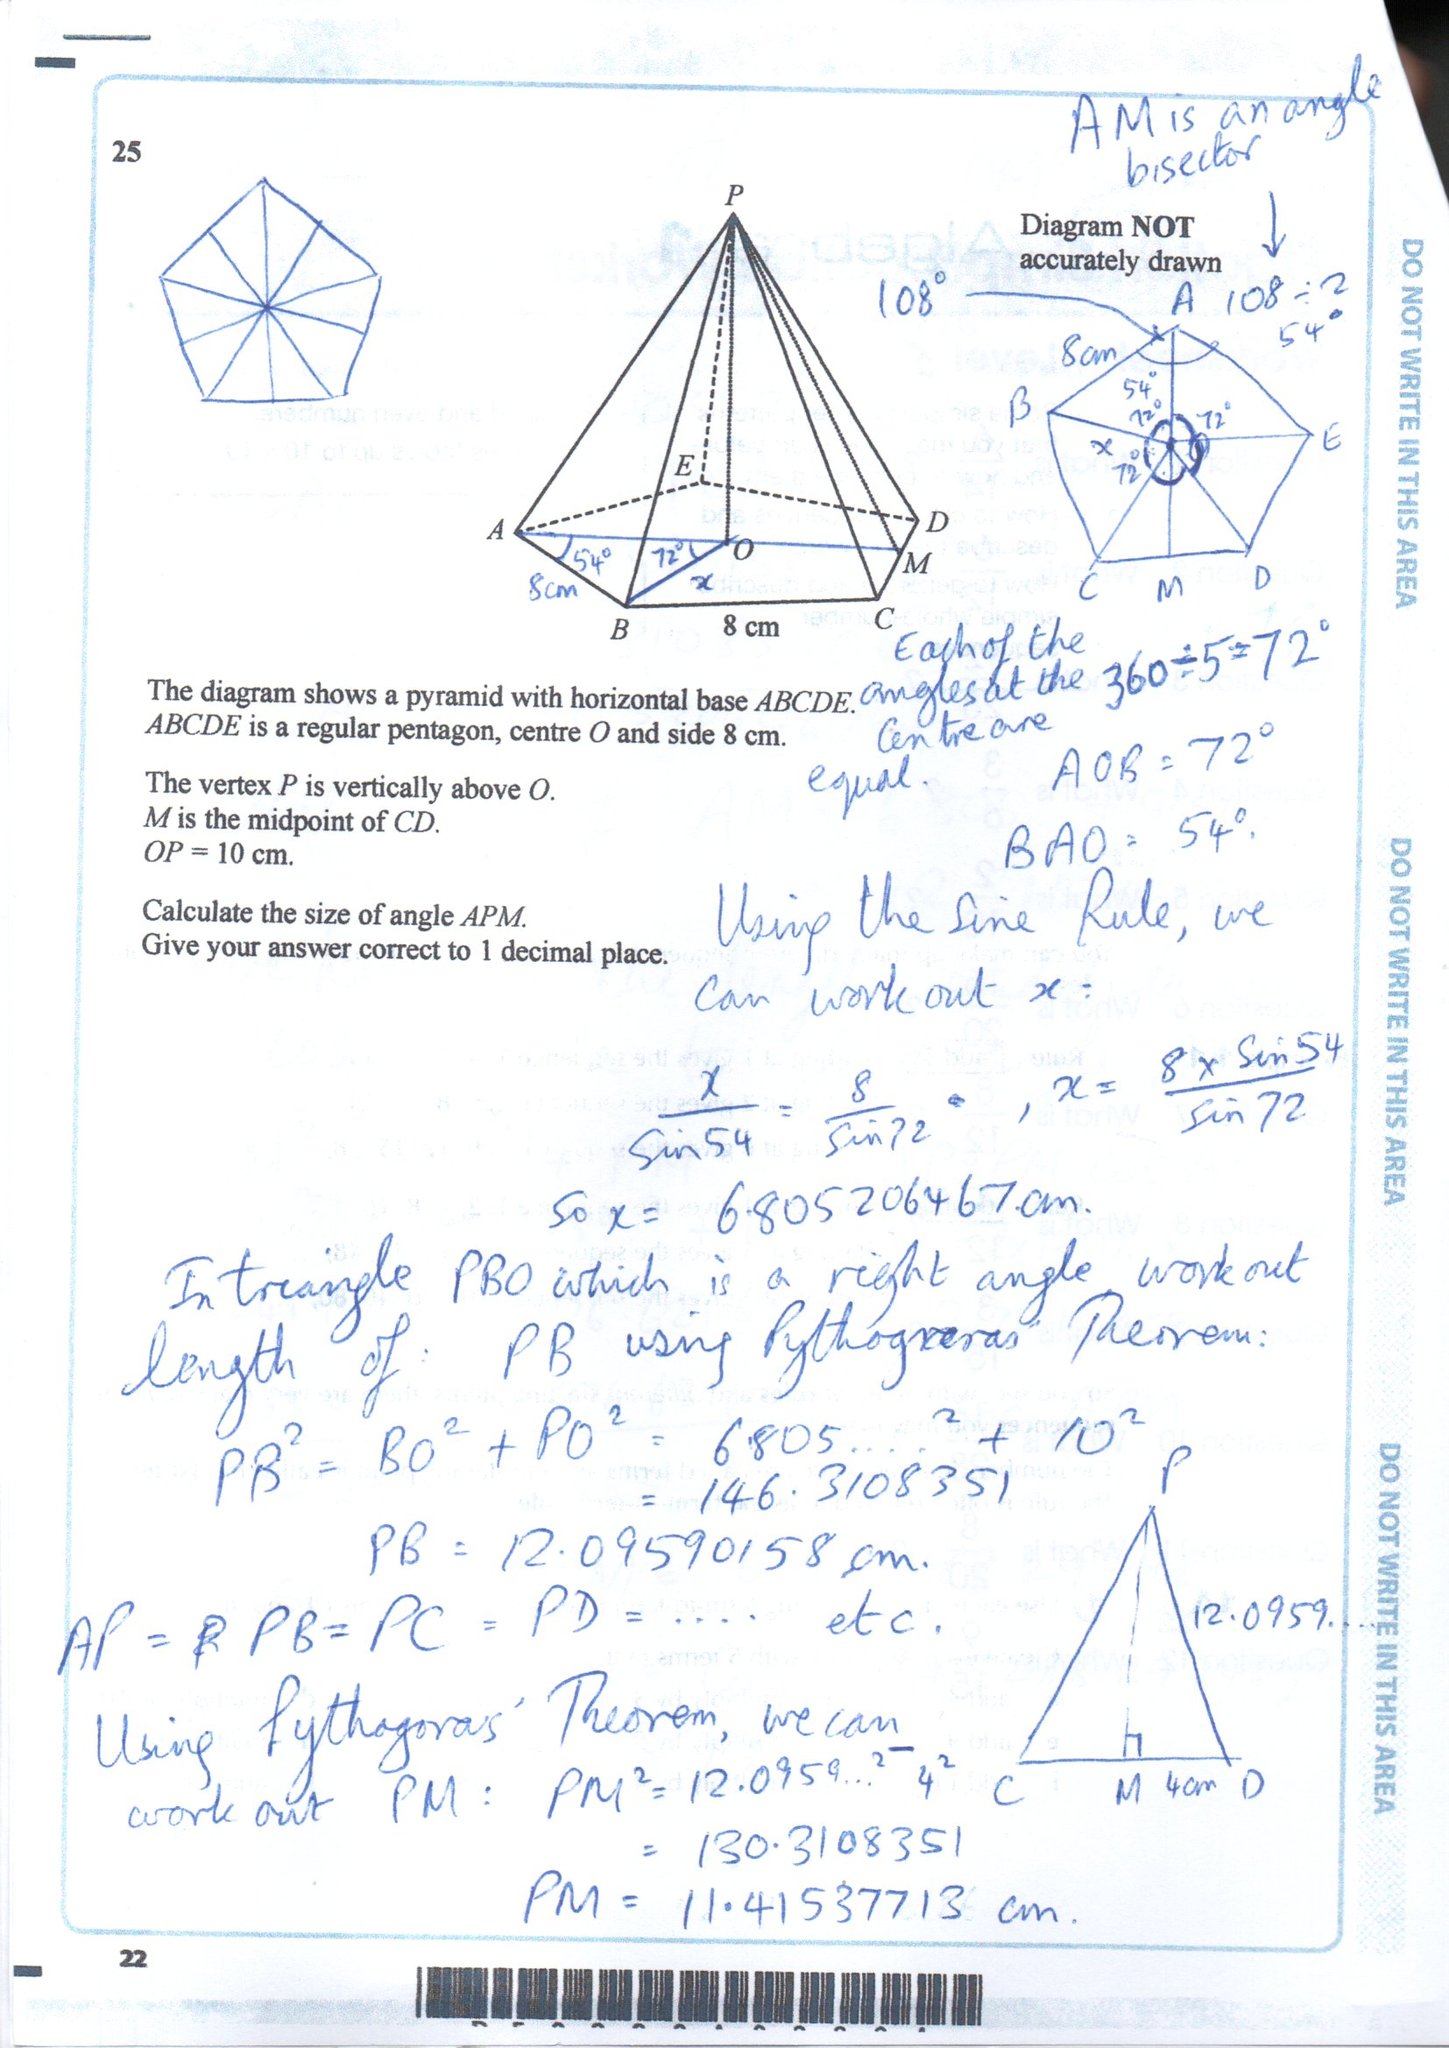 AM is an angle
bisector
25
P
Diagram NOT
accurately drawn
108°
A 108 ÷ 2
54°
8cm
54°
B
72°
72°
x
72°
O
E
C M D
E
A
D
54°
72°
O
M
8cm
x
B
8 cm
C
Each of the
angles at the 360÷5=72°
Centre are
equal.
The diagram shows a pyramid with horizontal base ABCDE.
ABCDE is a regular pentagon, centre O and side 8 cm.
AOB = 72°
The vertex P is vertically above O.
M is the midpoint of CD.
OP = 10 cm.
BAO = 54°.
Calculate the size of angle APM.
Give your answer correct to 1 decimal place.
Using the Sine Rule, we
can work out x:
x/sin 54 = 8/sin 72 , x = 8 x sin 54/sin 72
So x = 6.805206467 cm.
In triangle PBO which is a right angle work out
length of: PB using Pythagoras' Theorem:
PB² = BO² + PO² = 6.805....² + 10²
= 146.3108351
PB = 12.09590158 cm.
AP = PB = PC = PD = ..... etc.
P
12.0959....
Using Pythagoras' Theorem, we can
work out PM: PM² = 12.0959...² – 4²
C M 4cm D
= 130.3108351
PM = 11.41537713 cm.
22
DO NOT WRITE IN THIS AREA
DO NOT WRITE IN THIS AREA
DO NOT WRITE IN THIS AREA